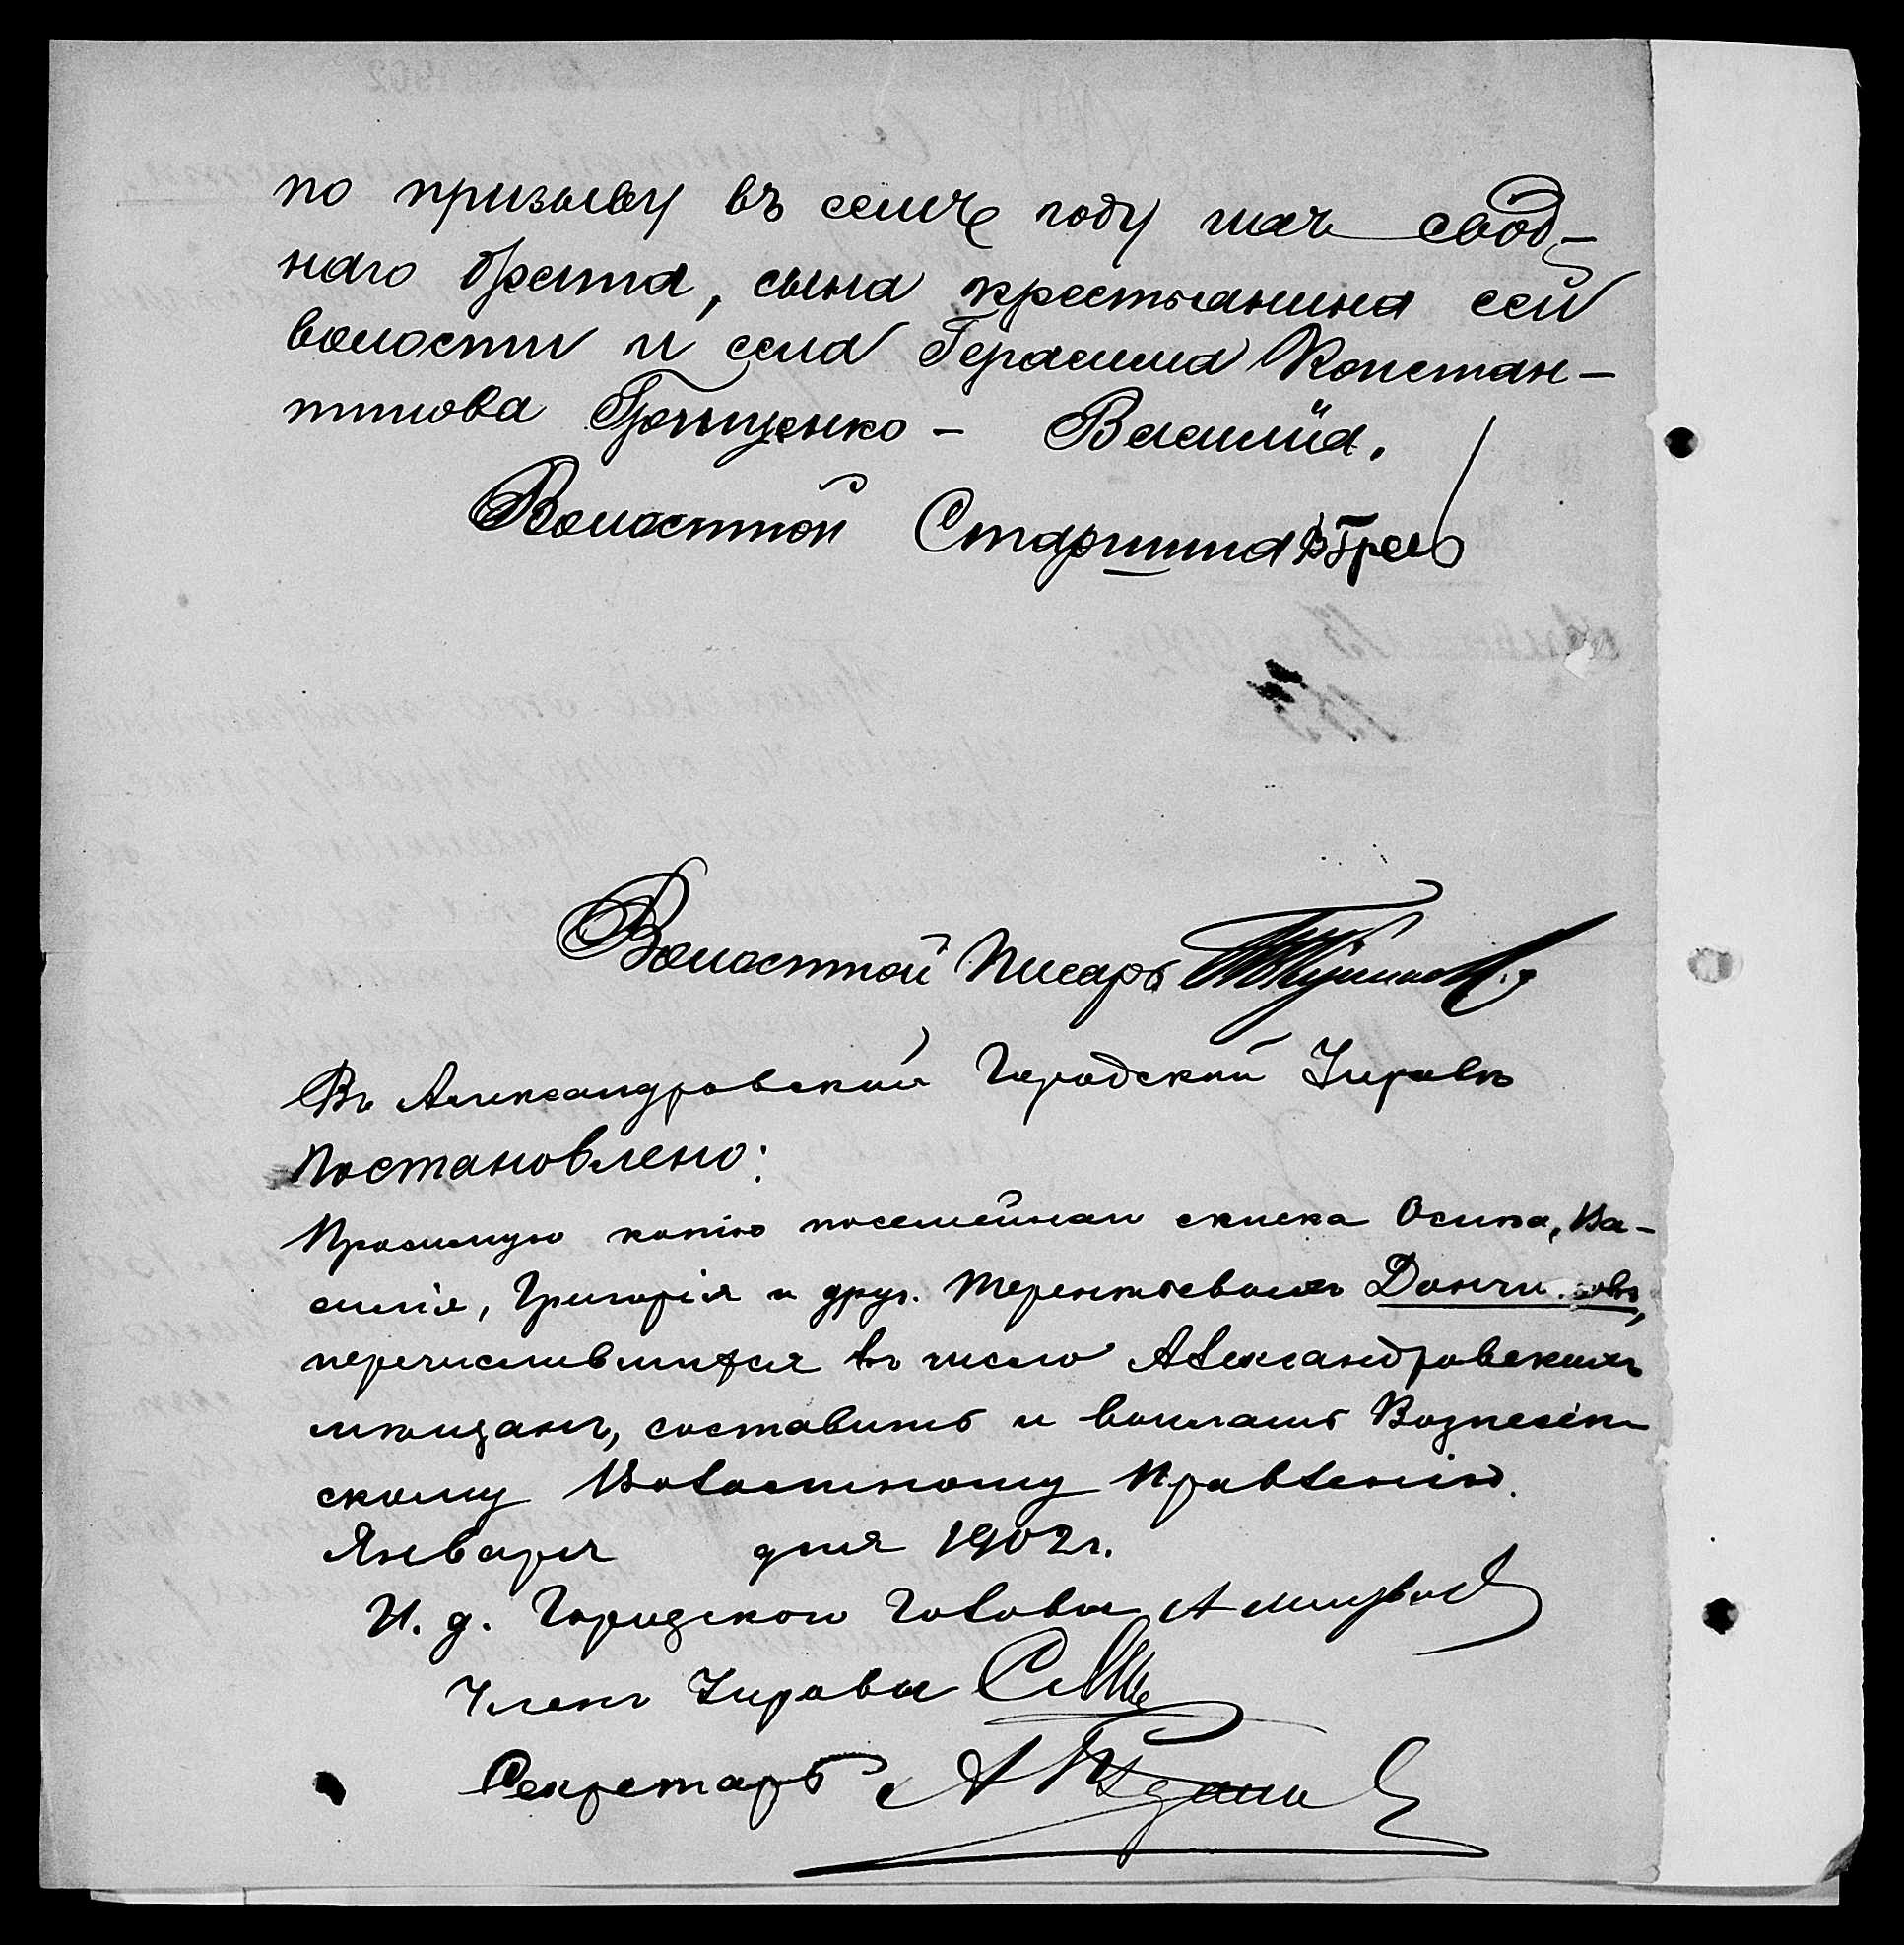 по призыву въ семъ году ихъ свод-
наго брата, сына крестьянина сей
волости и села Герасима Констан-
тинова Грищенко - Василія.
Волостной Старшина
Волостной Писарь
Въ Александровской Городской Управѣ
Постановлено:
Просимую копію посемейнаго списка Осипа, Ва-
силія, Григорія и друг. Терентьевыхъ
перечислившихся въ число Александровскихъ
мѣщанъ, составить и выслать Вознесен
скому Волостному Правленію.
Января дня 1902 г.
И. д. Городского Головы
Членъ Управы
Секретарь